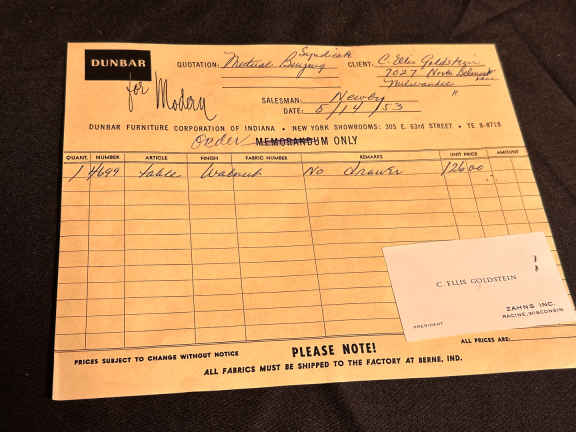 DUNBAR
for Modern
QUOTATION: Mutual Buying Syndicate
CLIENT: C. Ellis Goldstein
7027 North Belmont
Milwaukee "
SALESMAN: Newby
DATE: 5/14/53
DUNBAR FURNITURE CORPORATION OF INDIANA • NEW YORK SHOWROOMS: 305 E. 63rd STREET • TE 8-8718
Order MEMORANDUM ONLY
QUANT. NUMBER ARTICLE FINISH FABRIC NUMBER REMARKS UNIT PRICE AMOUNT
1 4699 table Walnut No drawer 126 00
C. ELLIS GOLDSTEIN
ZAHNS INC.
RACINE, WISCONSIN
PRESIDENT
PRICES SUBJECT TO CHANGE WITHOUT NOTICE
PLEASE NOTE!
ALL PRICES ARE:
ALL FABRICS MUST BE SHIPPED TO THE FACTORY AT BERNE, IND.